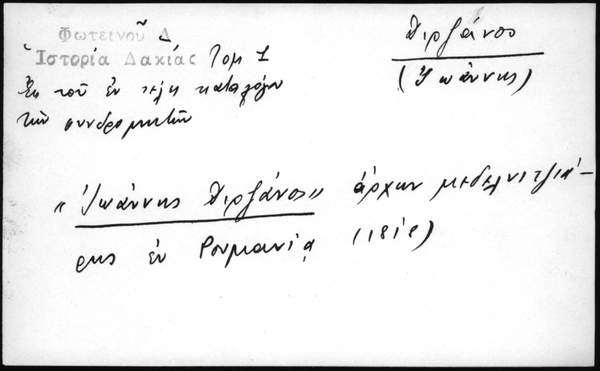 Φωτεινοῦ Δ
Ἱστορία Δακίας Τομ 1
Ἐκ τοῦ ἐν τέλει καταλόγου
τῶν συνδρομητῶν
Διρζάνος
(Ἰωάννης)
«Ἰωάννης Διρζάνος» ἄρχων μεδελνιτζιά-
ρης ἐν Ρουμανίᾳ (1818)